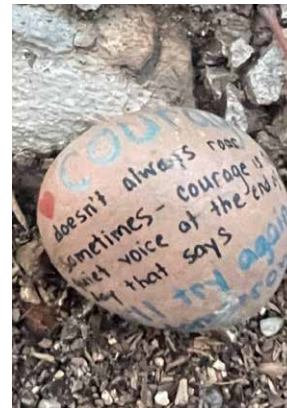 doesn't always roar
sometimes - courage is
quiet voice at the end
day that says
try again